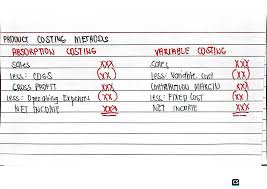 PRODUCT COSTING METHODS
ABSORPTION COSTING VARIABLE COSTING
Sales XXX Sales XXX
Less: COGS (XX) Less: Variable Cost (XX)
GROSS PROFIT XXX CONTRIBUTION MARGIN XXX
Less: Operating Expenses (XX) Less: FIXED COST (XX)
NET INCOME XXX NET INCOME XXX